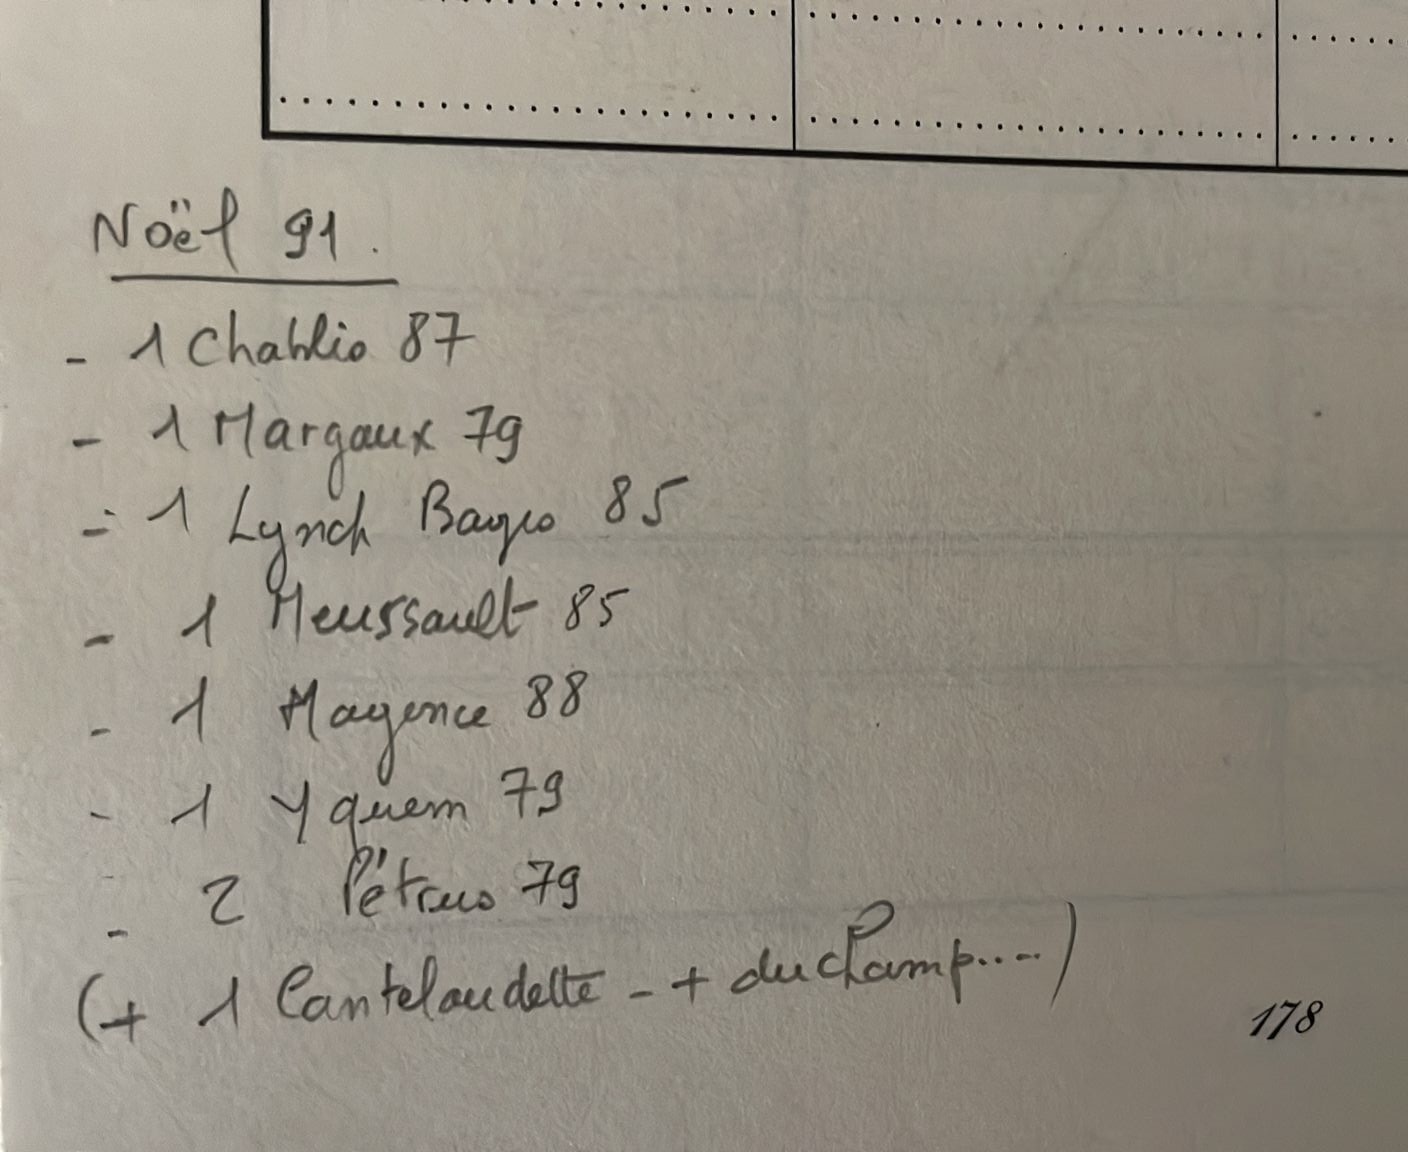 Noël 91.
- 1 Chablis 87
- 1 Margaux 79
- 1 Lynch Bages 85
- 1 Meussault 85
- 1 Magence 88
- 1 Yquem 79
- 2 Pétrus 79
(+ 1 Cantelaudette - + du champ....)
178